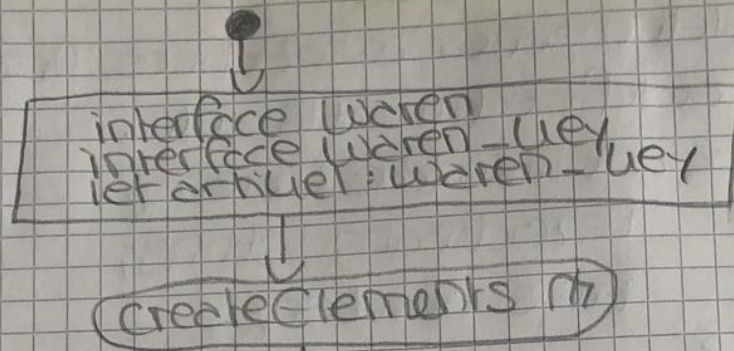 interface Waren
interface Waren_key
let artikel: Waren_key
createElements